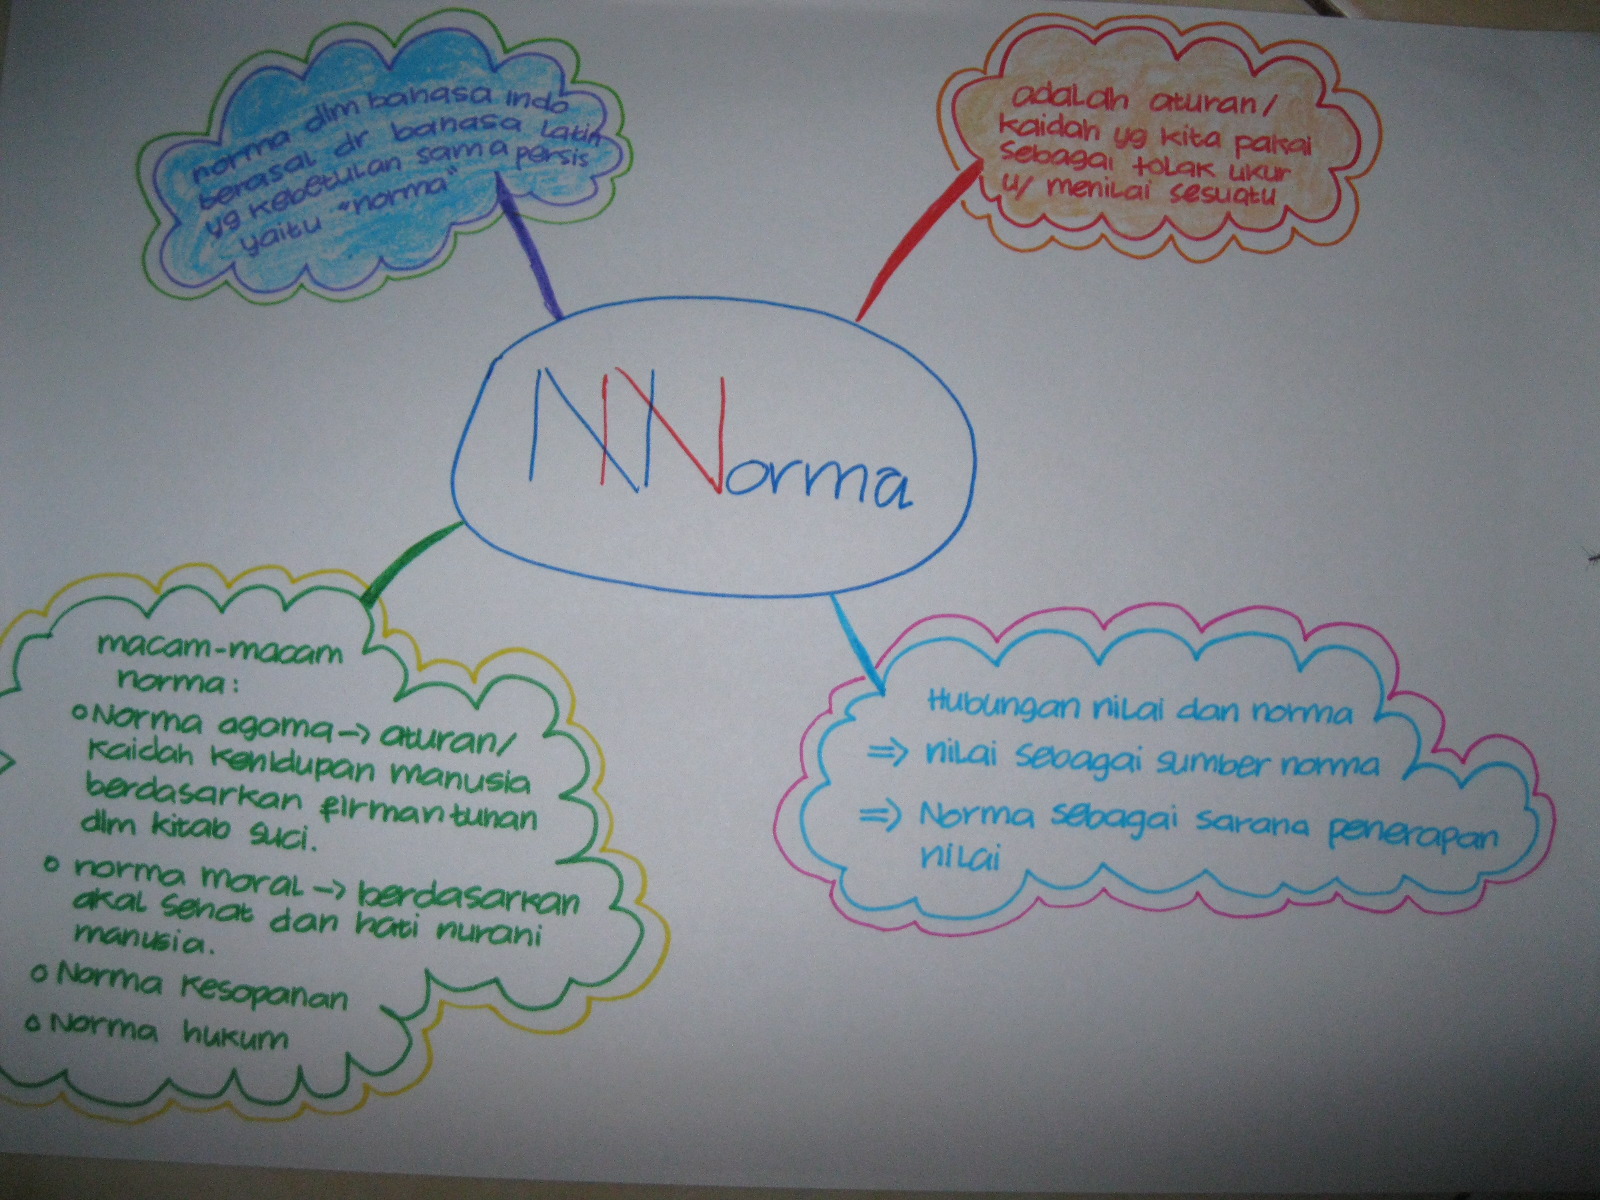 norma dlm bahasa indo
berasal dr bahasa latin
yg kebetulan sama persis
yaitu "norma"
adalah aturan/
kaidah yg kita pakai
sebagai tolak ukur
u/ menilai sesuatu
NNorma
macam-macam
norma:
Norma agama → aturan/
kaidah kehidupan manusia
berdasarkan firman tuhan
dlm kitab suci.
norma moral → berdasarkan
akal sehat dan hati nurani
manusia.
Norma kesopanan
Norma hukum
Hubungan nilai dan norma
⇒ nilai sebagai sumber norma
⇒ Norma sebagai sarana penerapan
nilai